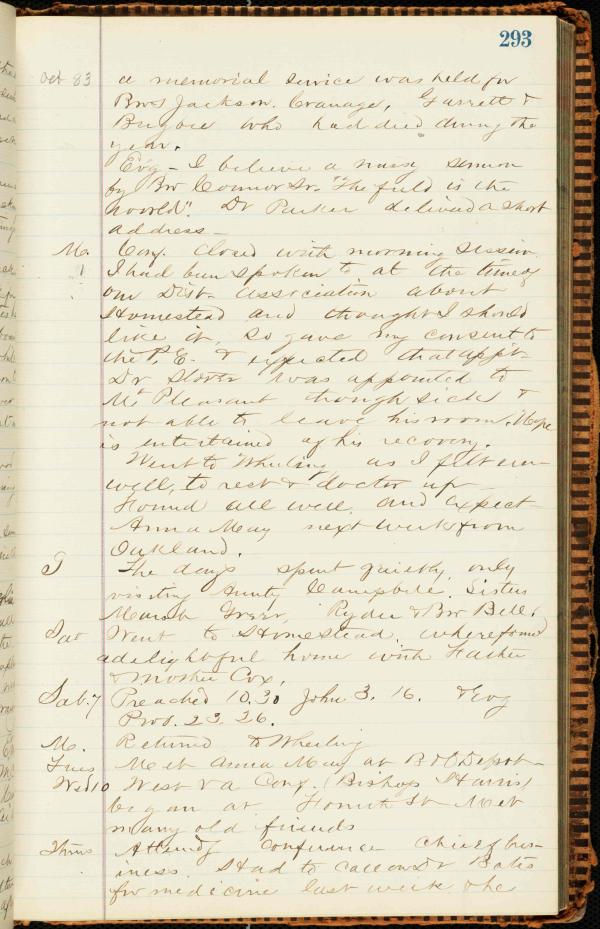 293
Oct 83 a memorial service was held for
Bros Jackson. Cranage, Garrett &
who had died during the
year.
Evg - I believe a missy sermon
by Bro Connor Sr. "The field is the
world". Dr Parker delived a short
address -
M. Conf. closed with morning session.
1 I had been spoken to at the time of
our Dist. association about
Homestead and thought I should
like it, so gave my consent to
the P. E. & expected that appt.
Dr Storer was appointed to
Mt Pleasant though sick &
not able to leave his room. Hope
is entertained of his recovery.
Went to Wheeling as I felt un-
well, to rest & doctor up -
Found all well and expect
Anna May next week from
Oakland.
The days spent quietly, only
visiting Aunty Campbell. Sisters
Marsh Ryder & Bro Bell.
Sat Went to Homestead, where found
a delightful home with Father
& Mother Cox.
Sab. 7 Preached 10.30 John 3. 16. & Evg
Prov. 23. 26.
M. Returned to Wheeling
Tues Met Anna May at B & O Depot -
Wed 10 West Va Conf. (Bishop Harris)
began at Fourth St. Met
many old friends
Thurs Attendg Conference chief bus-
iness. Had to call on Dr Bates
for medicine last week. the